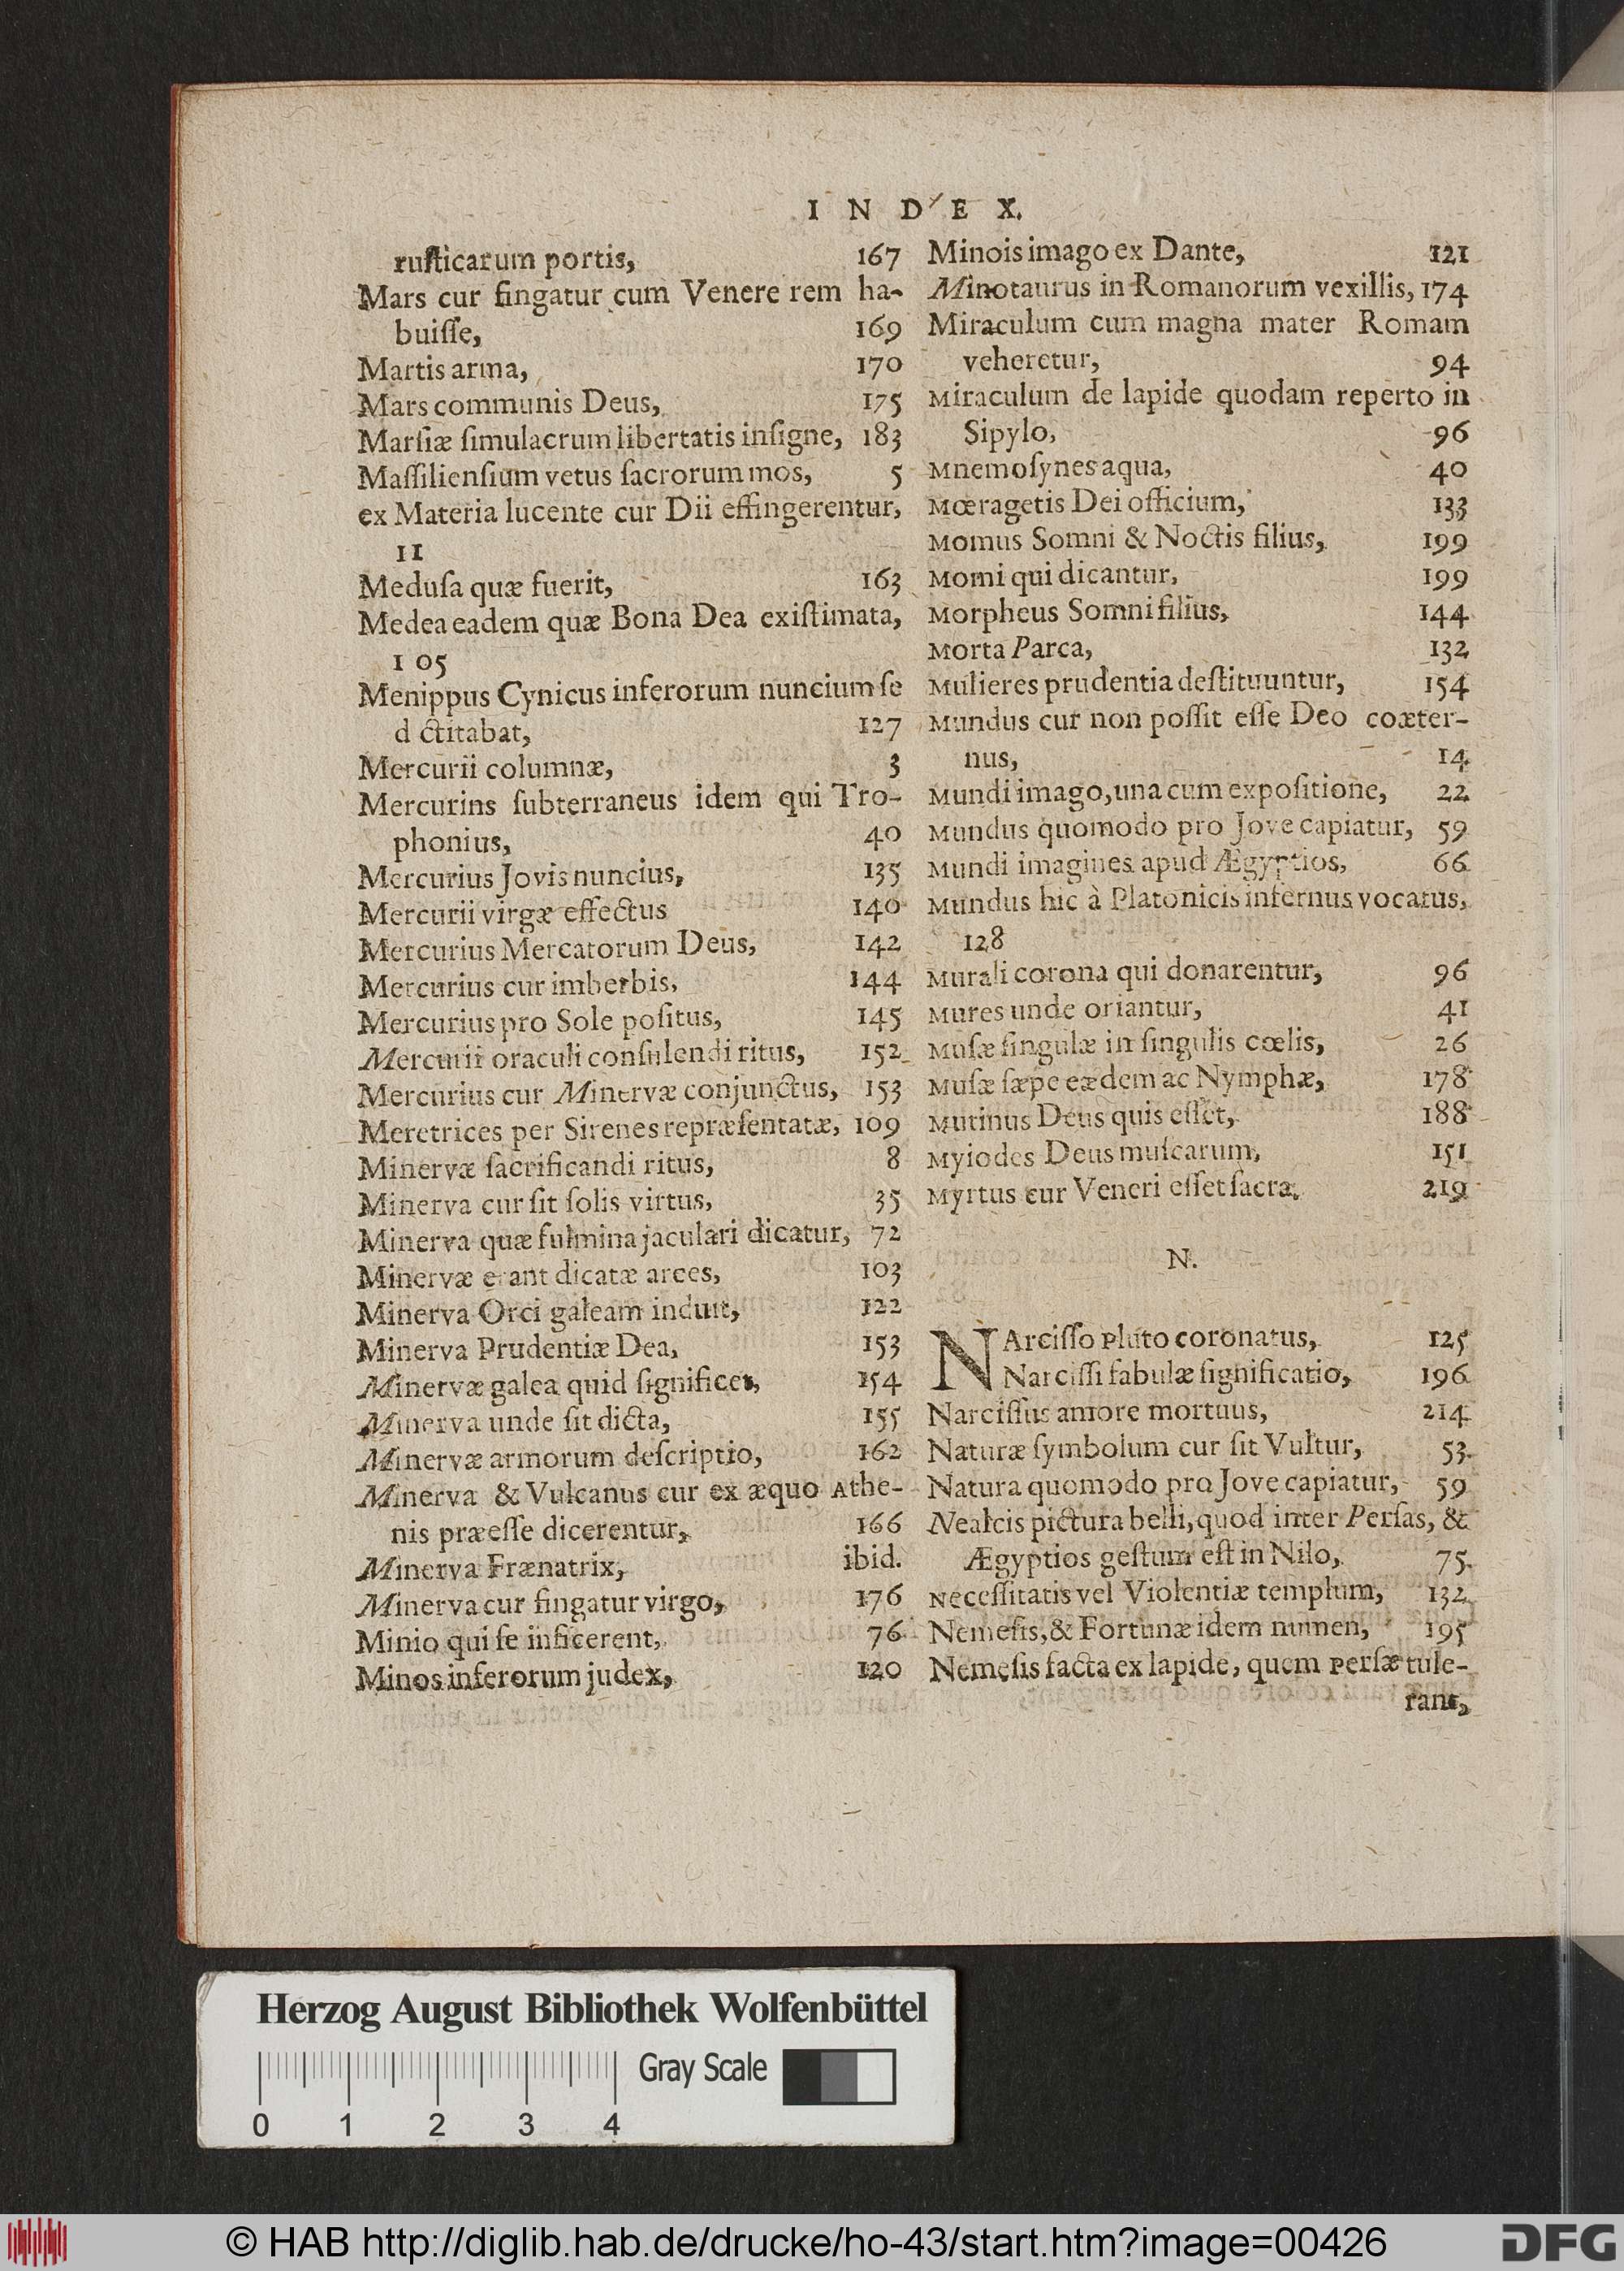 INDEX.
ruſticarum portis, 167
Mars cur fingatur cum Venere rem ha-
buiſſe, 169
Martis arma, 170
Mars communis Deus, 175
Marſiæ ſimulacrum libertatis inſigne, 183
Maſſilienſium vetus ſacrorum mos, 5
ex Materia lucente cur Dii effingerentur,
11
Meduſa quæ fuerit, 163
Medea eadem quæ Bona Dea exiſtimata,
1 05
Menippus Cynicus inferorum nuncium ſe
d ctitabat, 127
Mercurii columnæ, 3
Mercurins ſubterraneus idem qui Tro-
phonius, 40
Mercurius Jovis nuncius, 135
Mercurii virgæ effectus 140
Mercurius Mercatorum Deus, 142
Mercurius cur imberbis, 144
Mercurius pro Sole poſitus, 145
Mercurii oraculi conſulendi ritus, 152
Mercurius cur Minervæ conjunctus, 153
Meretrices per Sirenes repræſentatæ, 109
Minervæ ſacrificandi ritus, 8
Minerva cur ſit ſolis virtus, 35
Minerva quæ fulmina jaculari dicatur, 72
Minervæ erant dicatæ arces, 103
Minerva Orci galeam induit, 122
Minerva Prudentiæ Dea, 153
Minervæ galea quid ſignificet, 154
Minerva unde ſit dicta, 155
Minervæ armorum deſcriptio, 162
Minerva & Vulcanus cur ex æquo Athe-
nis præeſſe dicerentur, 166
Minerva Frænatrix, ibid.
Minerva cur fingatur virgo, 176
Minio qui ſe inficerent, 76
Minos inferorum judex, 120
Minois imago ex Dante, 121
Minotaurus in Romanorum vexillis, 174
Miraculum cum magna mater Romam
veheretur, 94
Miraculum de lapide quodam reperto in
Sipylo, 96
Mnemoſynes aqua, 40
Mœragetis Dei officium, 133
Momus Somni & Noctis filius, 199
Momi qui dicantur, 199
Morpheus Somni filius, 144
Morta Parca, 132
Mulieres prudentia deſtituuntur, 154
Mundus cur non poſſit eſſe Deo coæter-
nus, 14
Mundi imago, una cum expoſitione, 22
Mundus quomodo pro Jove capiatur, 59
Mundi imagines apud Ægyptios, 66
Mundus hic à Platonicis infernus vocatus,
128
Murali corona qui donarentur, 96
Mures unde oriantur, 41
Muſæ ſingulæ in ſingulis cœlis, 26
Muſæ ſæpe eædem ac Nymphæ, 178
Mutinus Deus quis eſſet, 188
Myiodes Deus muſcarum, 151
Myrtus cur Veneri eſſet ſacra, 219
N.
NArciſſo Pluto coronatus, 125
Narciſſi fabulæ ſignificatio, 196
Narciſſus amore mortuus, 214
Naturæ ſymbolum cur ſit Vultur, 53
Natura quomodo pro Jove capiatur, 59
Nealcis pictura belli, quod inter Perſas, &
Ægyptios geſtum eſt in Nilo, 75
Neceſſitatis vel Violentiæ templum, 132
Nemeſis, & Fortunæ idem numen, 195
Nemeſis facta ex lapide, quem Perſæ tule-
rant,
Herzog August Bibliothek Wolfenbüttel
Gray Scale
0 1 2 3 4
© HAB http://diglib.hab.de/drucke/ho-43/start.htm?image=00426
DFG